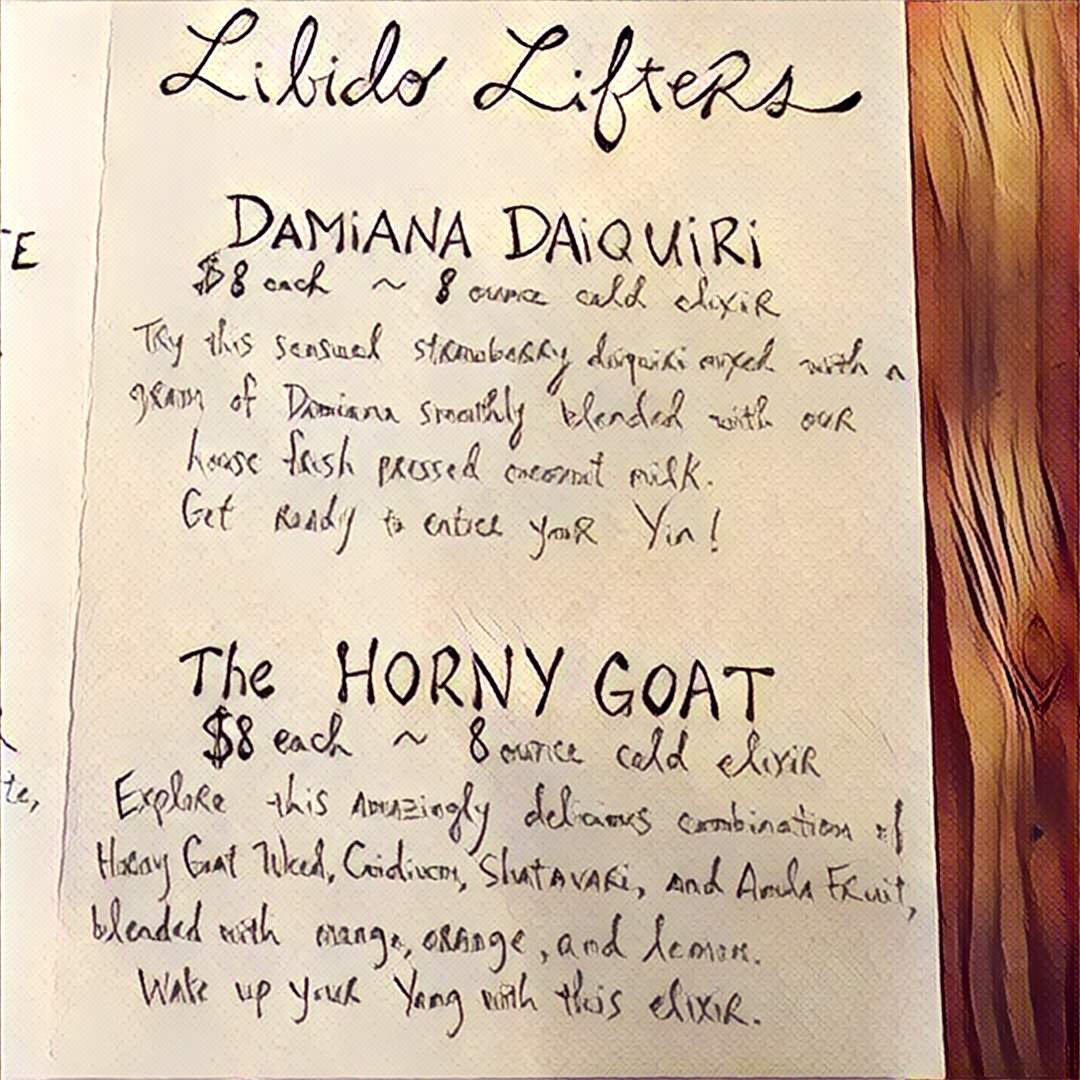 Libido Lifters
DAMiANA DAiQUiRi
$8 each ~ 8 ounce cold elixiR
TRy this sensual strawbeRRy daiquiRi mixed with a
gRam of Damiana smoothly blended with ouR
house fresh pRessed coconut milk.
Get Ready to entice youR Yin!
The HORNY GOAT
$8 each ~ 8 ounce cold elixiR
ExploRe this amazingly delicious combination of
HoRny Goat Weed, Cnidium, ShatavaRi, and Amla FRuit,
blended with mango, oRange, and lemon.
Wake up youR Yang with this elixiR.
TE
te,